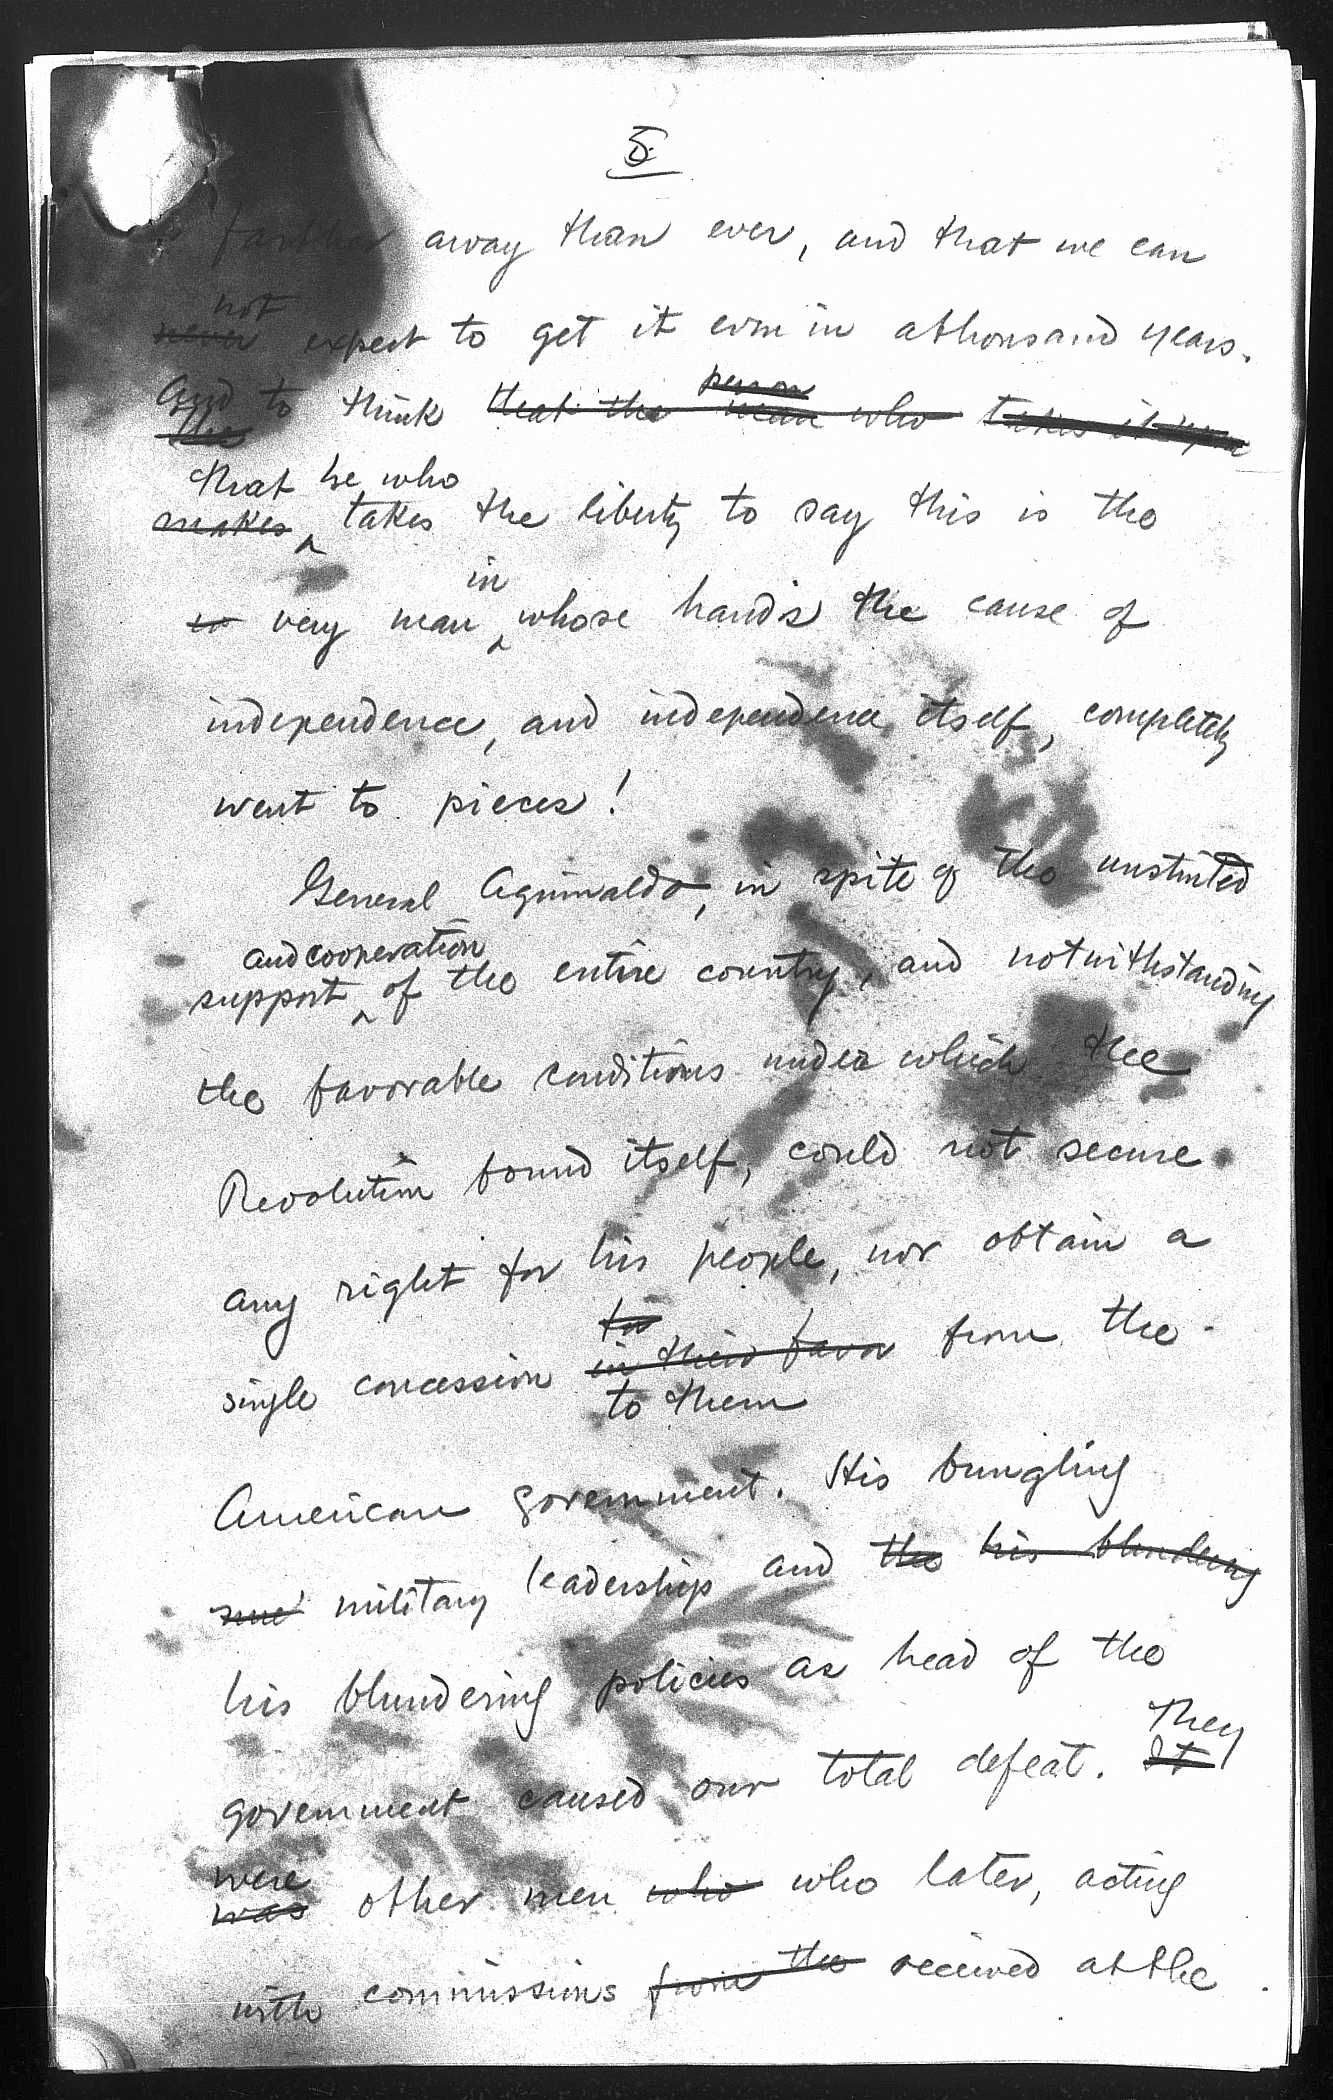 5.
is farther away than ever, and that we can
not
never expect to get it even in a thousand years.
And to think that the man who takes it upon
person
The
that he who
makes takes the liberty to say this is the
in
is very man whose hands the cause of
independence, and independence itself, completely
went to pieces!
General Aguinaldo, in spite of the unstinted
and cooperation
support of the entire country, and notwithstanding
the favorable conditions under which the
Revolution found itself, could not secure
any right for his people, nor obtain a
for
single concession in their favor from the
to them
American government. His bungling
military leadership and the his blundering
his blundering policies as head of the
They
government caused our total defeat. It
were
was other men who who later, acting
with commissions from the received at the